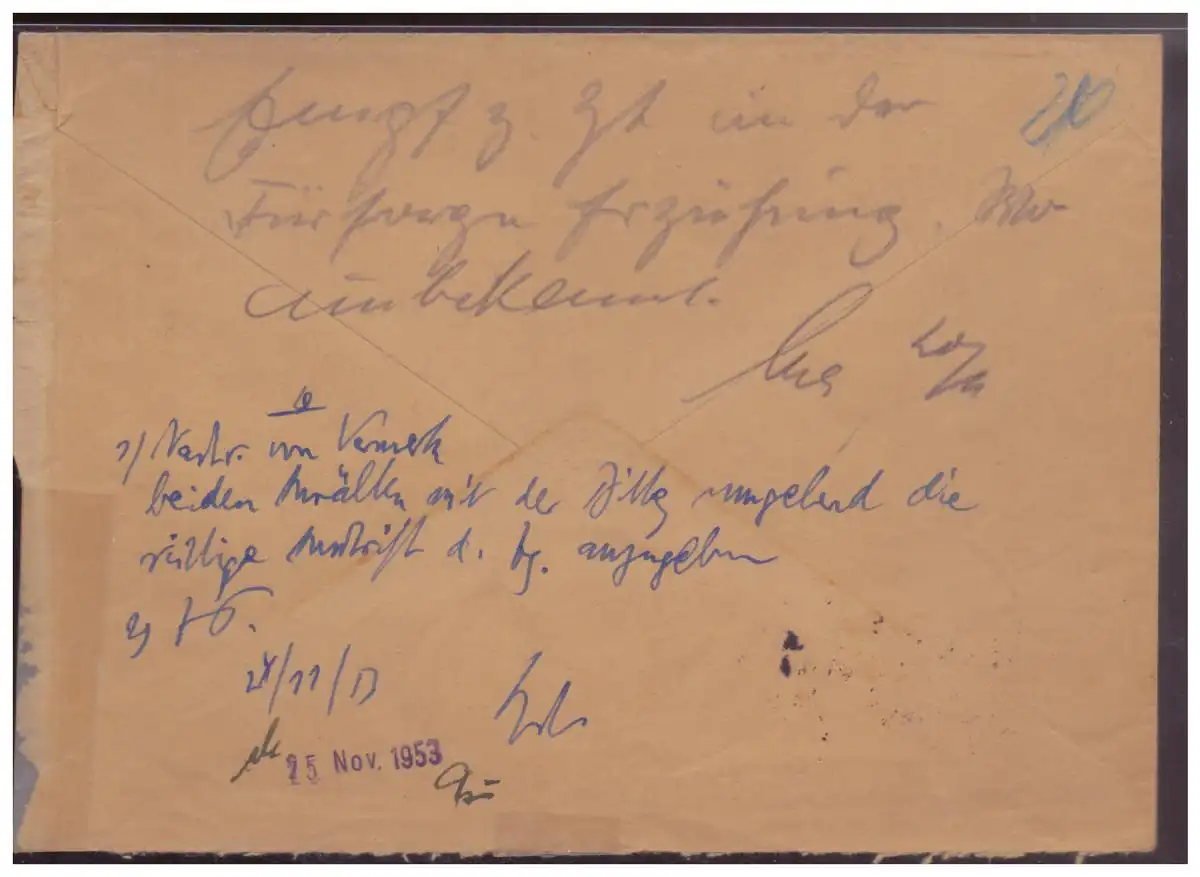 Empf z. Zt in der
Fürsorge Erziehung. Wo
unbekannt.
1/ Nachr. von Vermerk
beiden Anwälten mit der Bitte umgehend die
richtige Anschrift d. Bg. anzugeben
2/
24/11/53
25 Nov. 1953